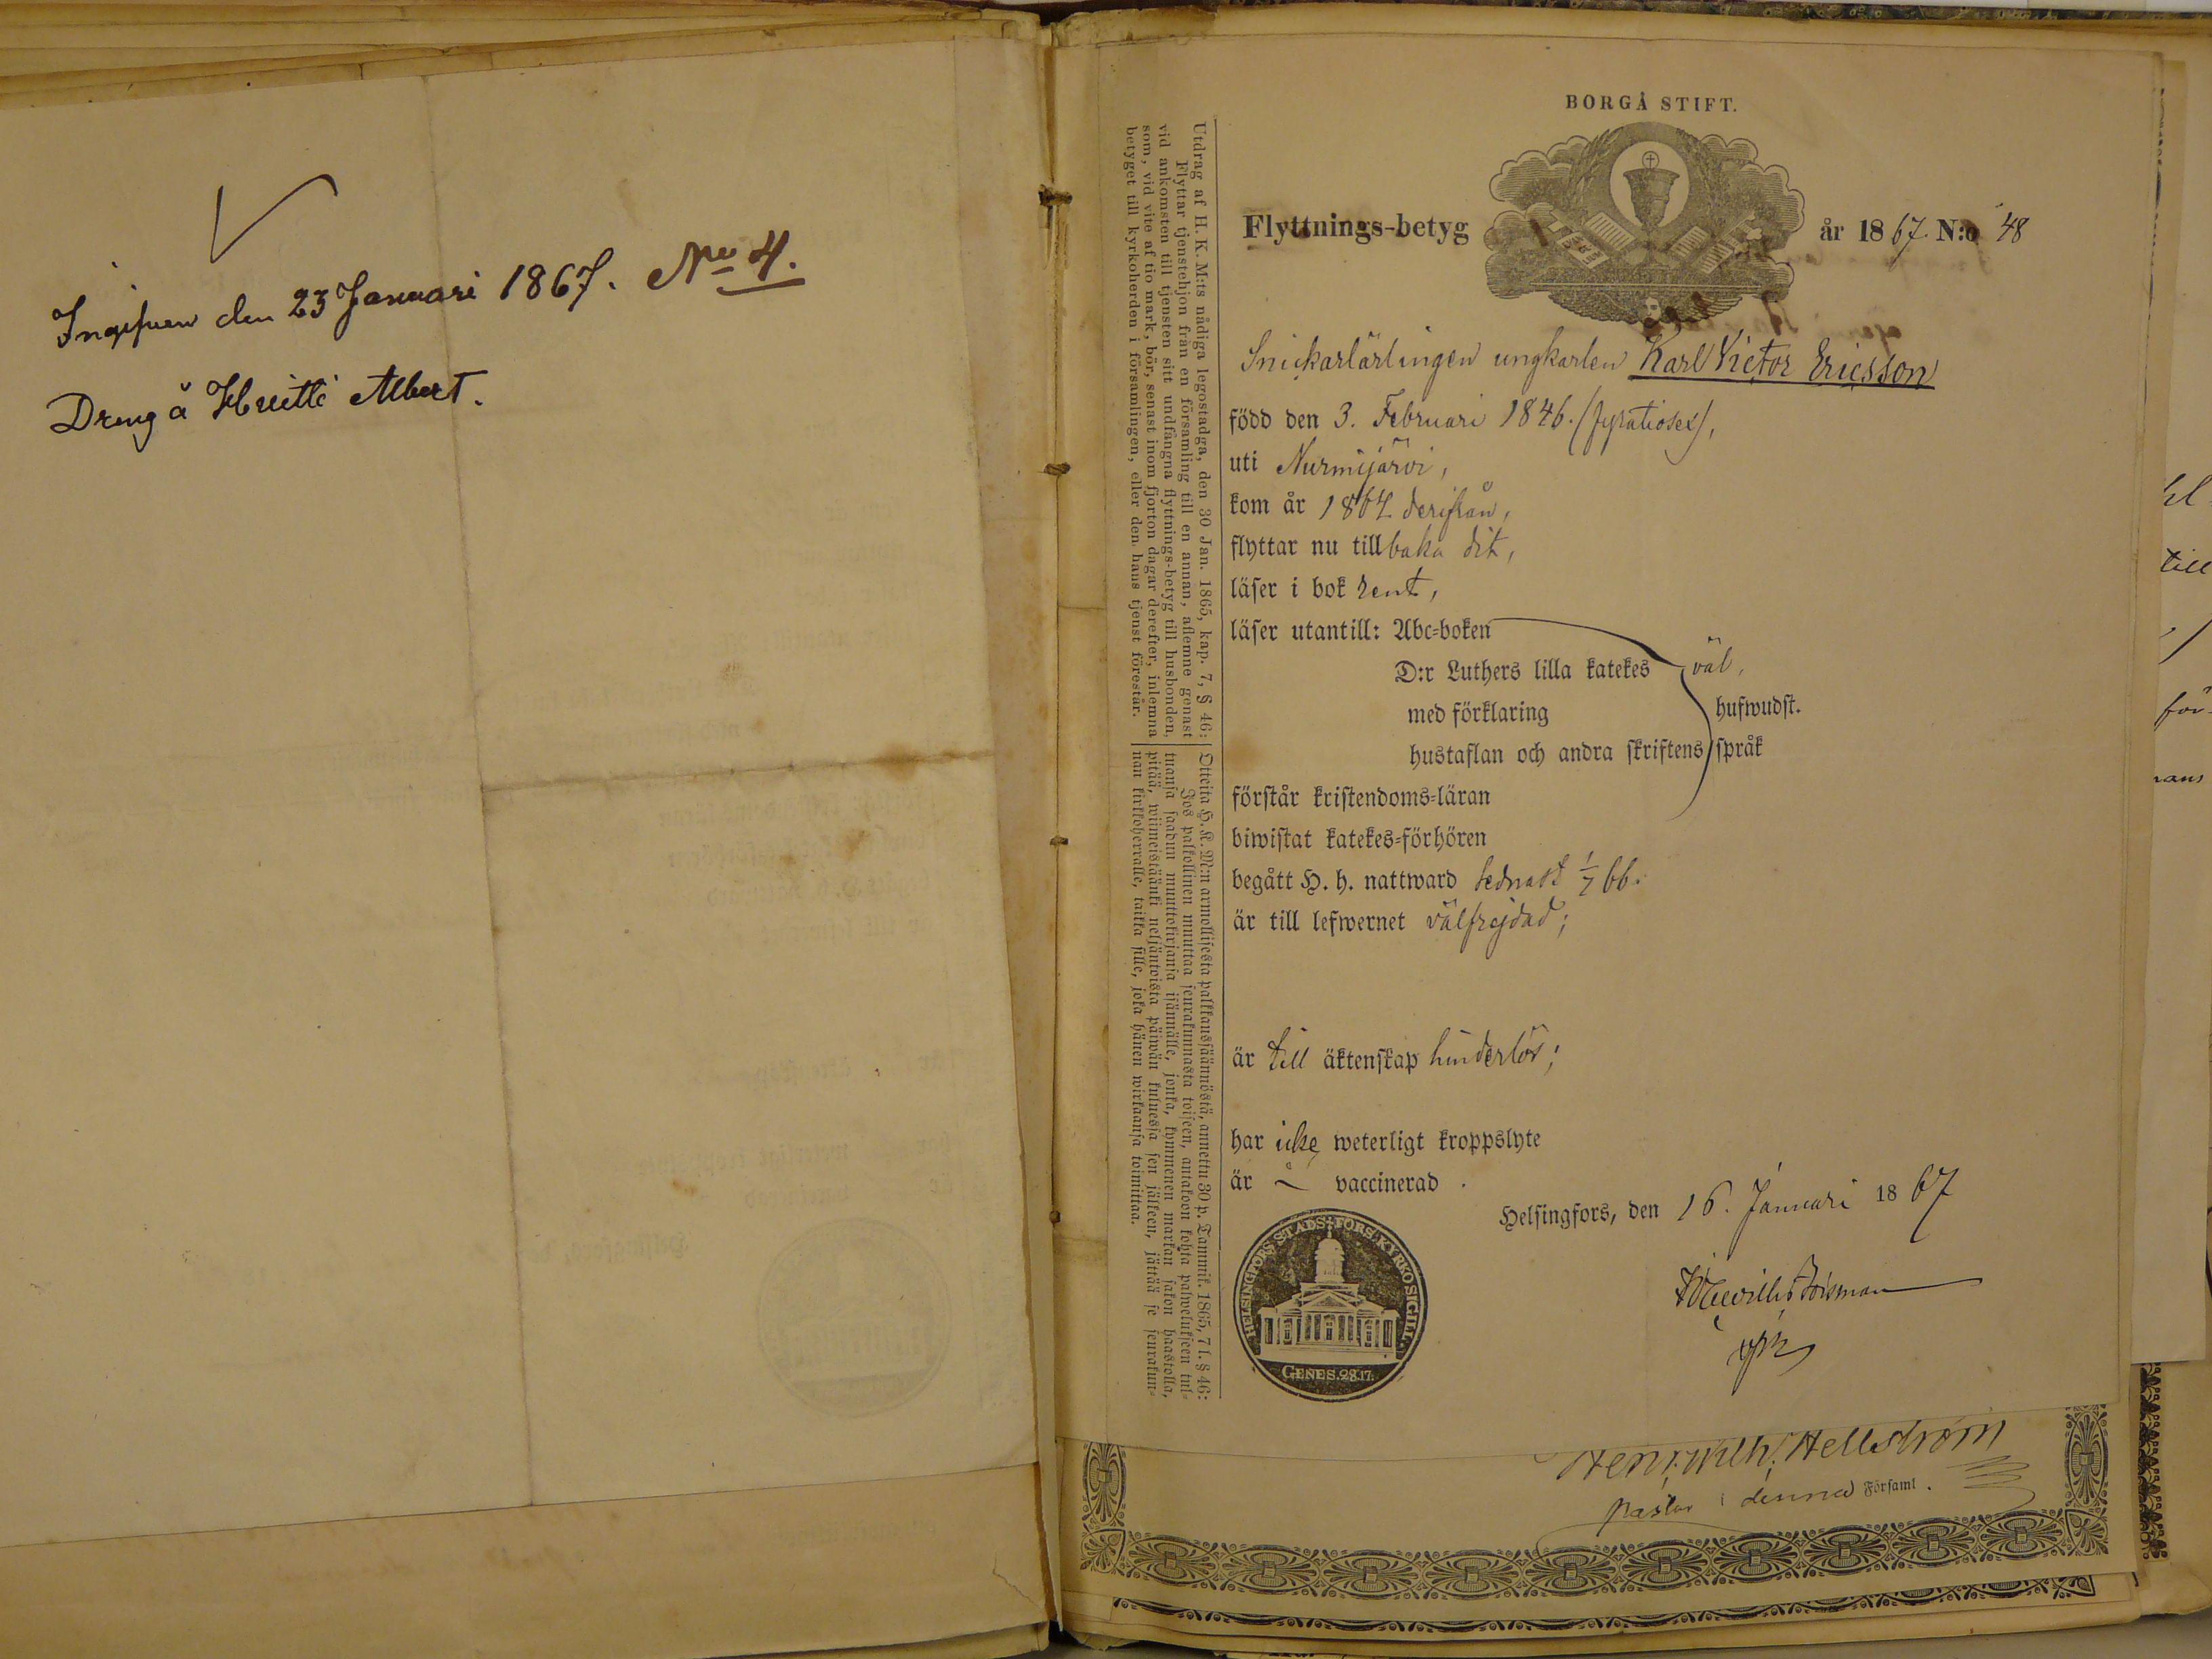 Ingifven den 23 Januari 1867. No 4.
Dreng å Albert.
BORGÅ STIFT.
Flyttnings-betyg år 1867. N:o 48
Snickarlärlingen ungkarlen Karl Victor Ericsson
född den 3. Februari 1846. (fyratiosex),
uti Nurmijärvi,
kom år 1864 derifrån,
flyttar nu tillbaka dit,
läser i bok rent,
läser utantill: Abc-boken
D:r Luthers lilla katekes väl,
med förklaring hufwudst.
hustaflan och andra skriftens språk
förstår kristendoms-läran
biwistat katekes-förhören
begått H. h. nattward sednast 1/7 66.
är till lefwernet välfrejdad;
är till äktenskap hinderlös;
har icke weterligt kroppslyte
är vaccinerad
Helsingfors, den 16. Januari 1867
HELSINGFORS STADS-FÖRS. KYRKO SIGILL.
GENES. 28.17.
Utdrag af H. K. M:ts nådiga legostadga, den 30 Jan. 1865, kap. 7, § 46:
Flyttar tjenstehjon från en församling till en annan, aflemne genast
vid ankomsten till tjensten sitt undfångna flyttnings-betyg till husbonden,
som, vid vite af tio mark, bör, senast inom fjorton dagar derefter, inlemna
betyget till kyrkoherden i församlingen, eller den, hans tjenst förestår.
Otteita H. K. M:n armollisesta palkkaussäännöstä, annettu 30 p. Tammik. 1865, 7 l. § 46:
Jos palkollinen muuttaa seurakunnasta toiseen, antakoon kohta palwelukseen tul-
tuansa saadun muuttokirjansa isännälle, jonka, kymmenen markan sakon haastolla,
pitää, wiimeistäänki neljäntoista päiwän kuluessa sen jälkeen, jättää se seurakun-
nan kirkkoherralle, taikka sille, joka hänen wirkaansa toimittaa.
Henr. Wilh. Hellström
pastor i denna Församl.
till
för-